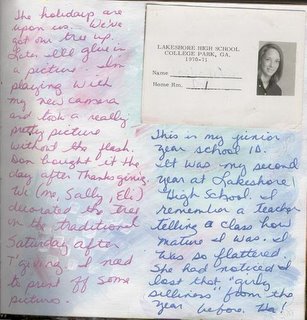 The holidays are
upon us. We've
got our tree up.
Later I'll glue in
a picture. I'm
playing with
my new camera
and took a really
pretty picture
without the flash.
Don bought it the
day after Thanksgiving.
We (me, Sally, Eli)
decorated the tree
on the traditional
Saturday after
T'giving. I need
to print off some
pictures.
LAKESHORE HIGH SCHOOL
COLLEGE PARK, GA.
1970-71
Name
Home Rm.
This is my junior
year school ID.
It was my second
year at Lakeshore
High School. I
remember a teacher
telling a class how
mature I was. I
was so flattered.
She had noticed I
lost that "girly
silliness" from the
year before. Ha!